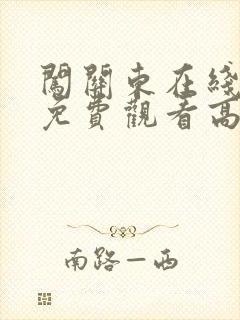 闖關東在綫
免費觀看高
南路一西